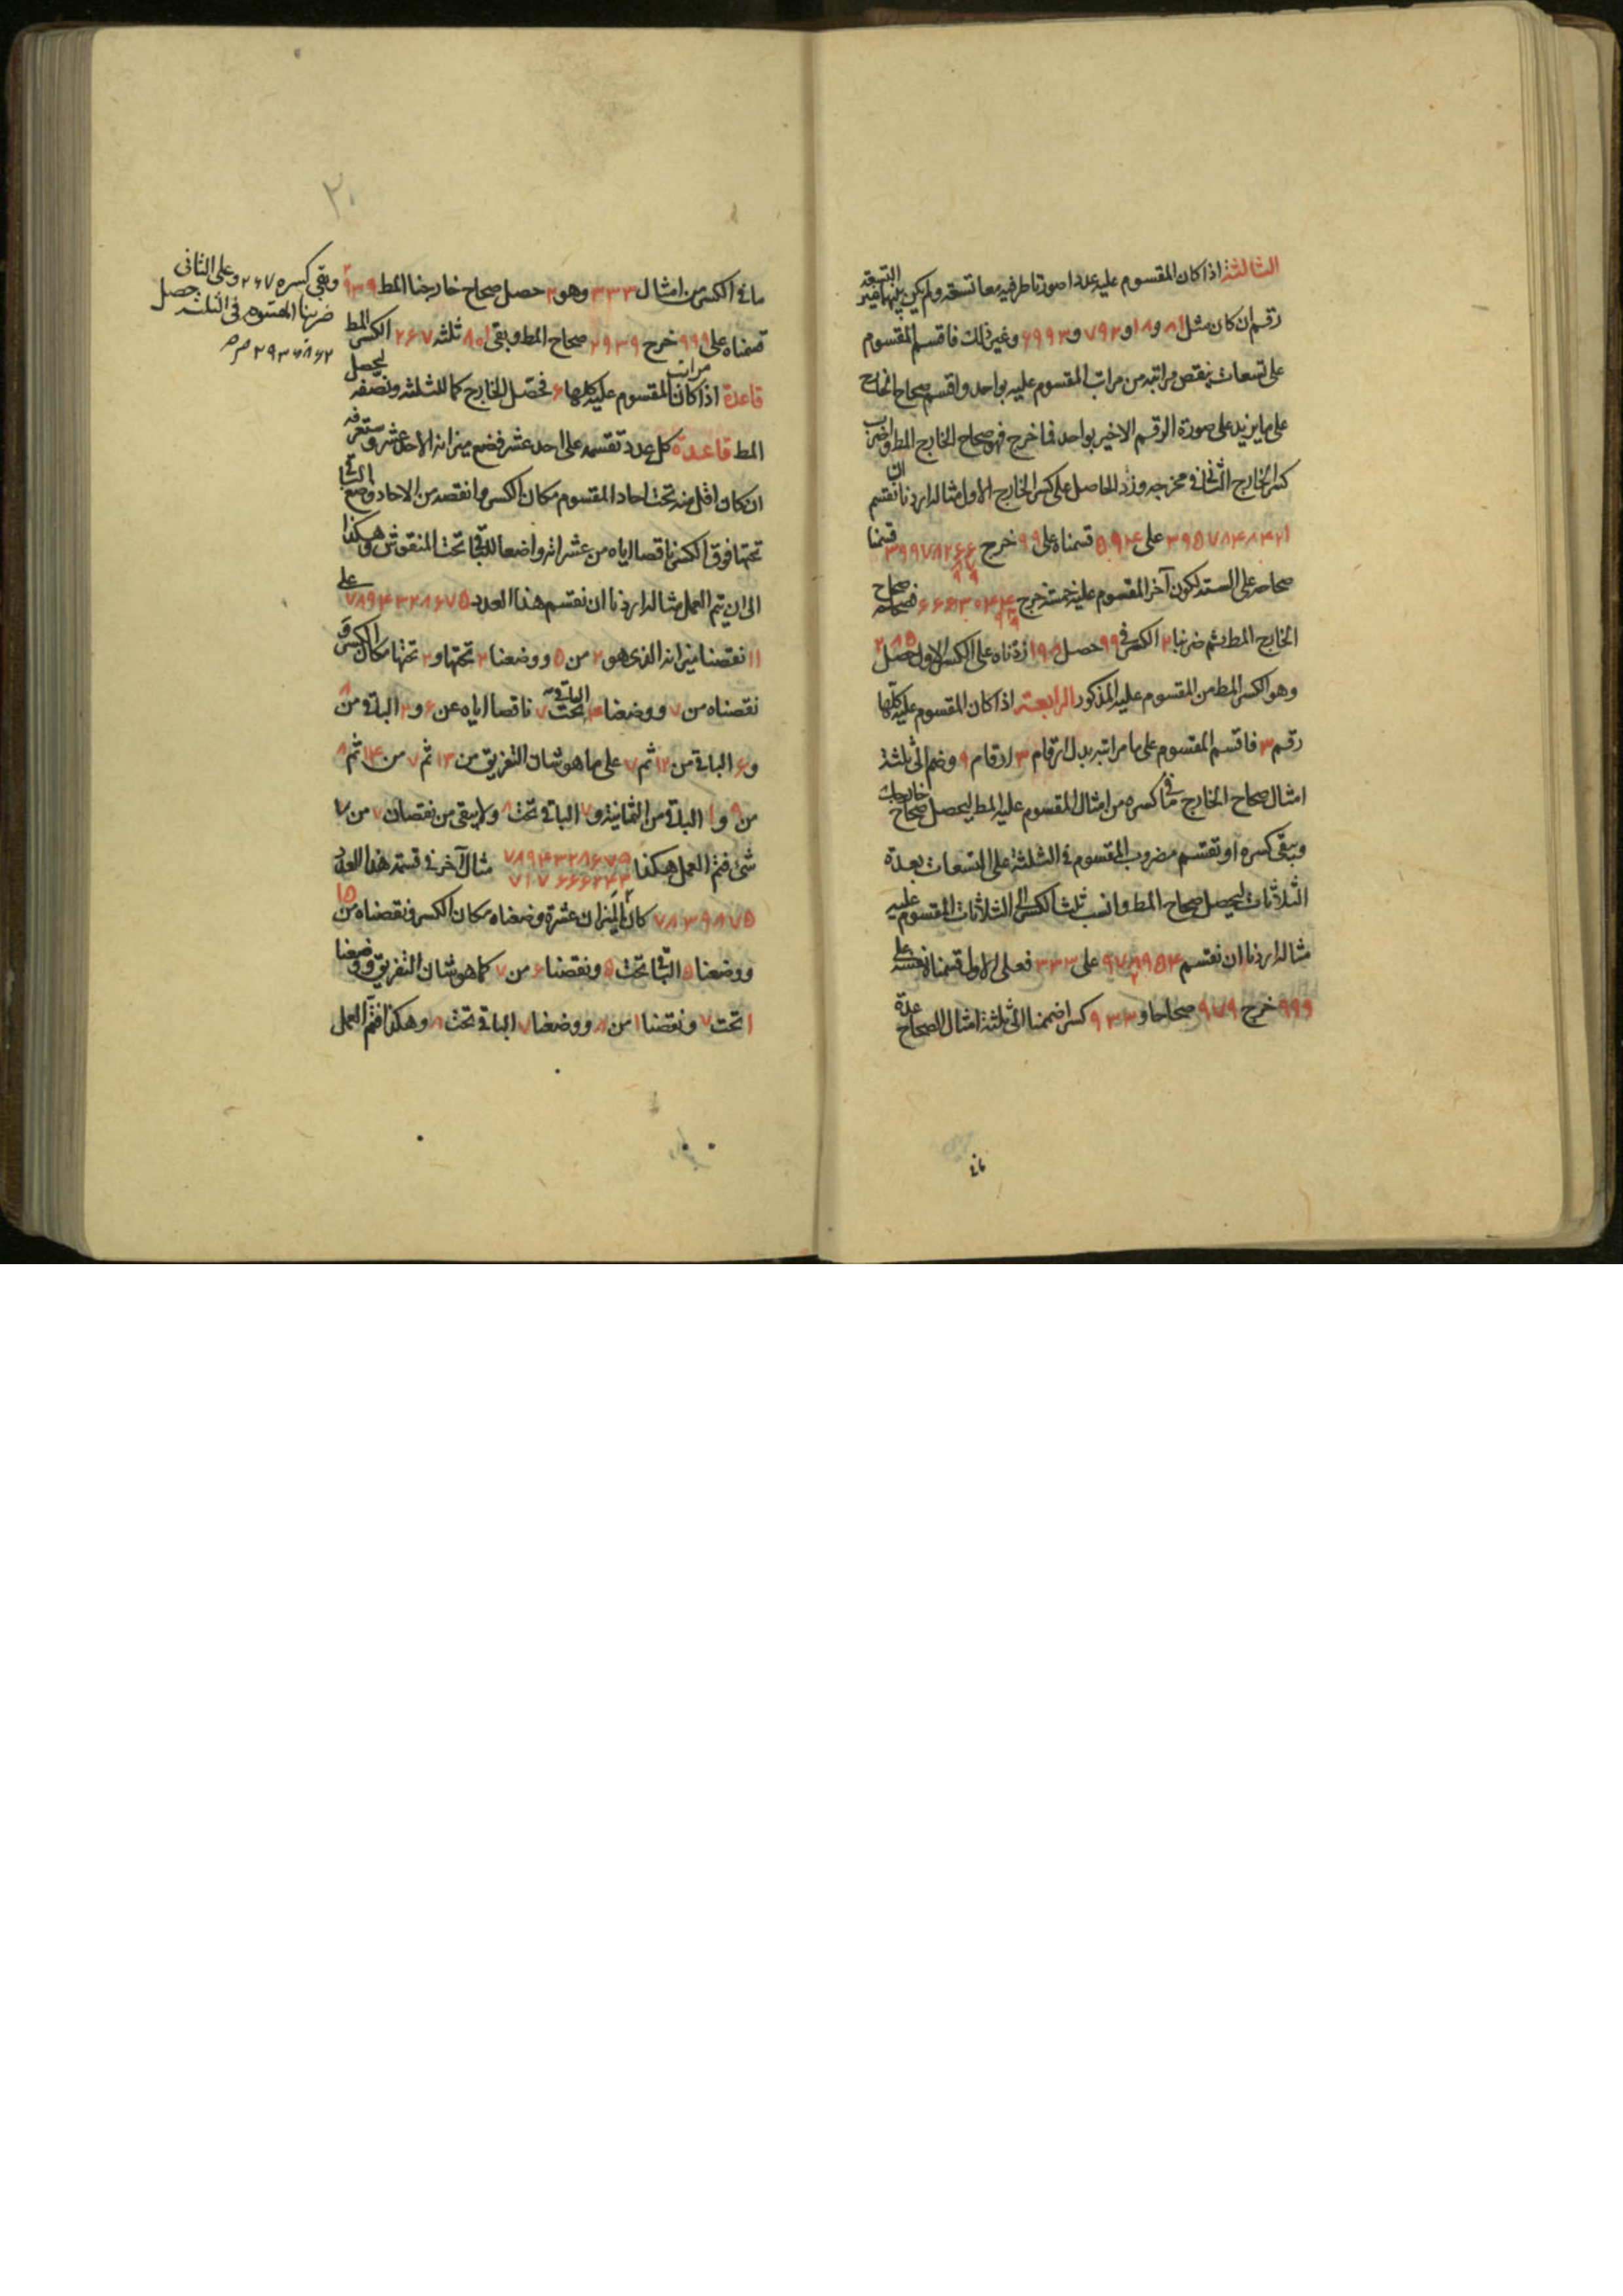 الثالثة اذا كان المقسوم عليه عددا صورتا طرفيه معا تسعة ولم يكن بينهما غير التسعة
رقم ان كان مثل ٨١ و ١٨ و ٧٩٢ و ٦٩٩٣ وغير ذلك فاقسم المقسوم
على تسعات ينقص مراتبه من مراتب المقسوم عليه بواحد واقسم صحاح الخارج
على ما يزيد على صورة الرقم الاخير بواحد فما خرج فهو صحاح الخارج المط واضرب
كسر الخارج الثاني في مخرجه وزد الحاصل على كسر الخارج الاول مثاله اردنا ان نقسم
على ٥٩٤ قسمناه على ٩٩ خرج قسمنا
صحاحه على الستة لكون آخر المقسوم عليه خمسة خرج صحاح
الخارج المط ثم ضربنا ٢ الكسر في ٩٩ حصل ١٩٨ زدناه على الكسر الاول حصل ٢٨٥
وهو الكسر المط من المقسوم عليه المذكور الرابعة اذا كان المقسوم عليه كلها
رقم ٣ فاقسم المقسوم على ما مراتبه بدل ارقام ٣ ارقام ٩ وضم الى ثلثة
امثال صحاح الخارج ما في كسره من امثال المقسوم عليه المط ليحصل صحاح خارجك
ويبقى كسره او تقسم مضروب المقسوم في الثلثة على التسعات بعدة
الثلاثات ليحصل صحاح المط وانسب ثلث الكسر الى الثلاثات المقسوم عليه
مثاله اردنا ان نقسم على ٣٣٣ فعلى الاول قسمناه نفسه على
٩٩٩ خرج ٩٧٩ صحاحا و ٩٣٣ كسرا ضممنا الى ثلثة امثال الصحاح عدة
٣٠
ما في الكسر من امثال ٣٣٣ وهو ٢ حصل صحاح خارجنا المط ٢٩٣٩
وبقي كسره ٢٦٧ وعلى الثاني
ضربنا المقسوم في الثلثة حصل
٢٩٣٦٨٦٢
قسمناه على ٩٩٩ خرج ٢٩٣٩ صحاح المط وبقي ٨٠١ ثلثه ٢٦٧ الكسر المط
قاعدة اذا كان مراتب المقسوم عليه كلها ٦ فحصل الخارج كما للثلثة ونصفه ليحصل
المط قاعدة كل عدد تقسمه على احد عشر فضع ميزانه الاحد عشر وستعرفه
ان كان اقل منه تحت احاد المقسوم مكان الكسر وانقصه من الاحاد وضع الباقي
تحتها فوق الكسر ناقصا اياه من عشراته واضعا للباقي تحت المنقوش وهكذا
الى ان يتم العمل مثاله اردنا ان نقسم هذا العدد ٧٨٩٤٣٢٨٦٧٥ على
١١ نقصنا ميزانه الذي هو ٢ من ٥ ووضعنا ٣ تحتها و ٢ تحتها مكان الكسر و
نقصناه من ٧ ووضعنا ٤ الباقي تحت ٧ ناقصا اياه عن ٦ و ٢ الباقي من ٨
و ٦ الباقي من ١٢ ثم ٧ على ما هو شان التفريق من ١٣ ثم ٧ من ١٤ ثم ٨
من ٩ و ١ الباقي من الثمانية و ٧ الباقي تحت ٨ ولا يبقى من نقصان ٧ من ٧
شئ فتم العمل هكذا ٧٨٩٤٣٢٨٦٧٥ مثال آخر في قسمة هذا العدد
٧١٧٦٦٦٢٤٣
٧٨٣٩٨٧٥ كان الميزان عشرة وضعناه مكان الكسر ونقصناه من ١٥
ووضعنا ٥ الباقي تحت ٥ ونقصنا ٦ من ٧ كما هو شان التفريق ووضعنا
١ تحت ٧ ونقصنا ١ من ٨ ووضعنا ٧ الباقي تحت ٨ وهكذا فتم العمل
ما في